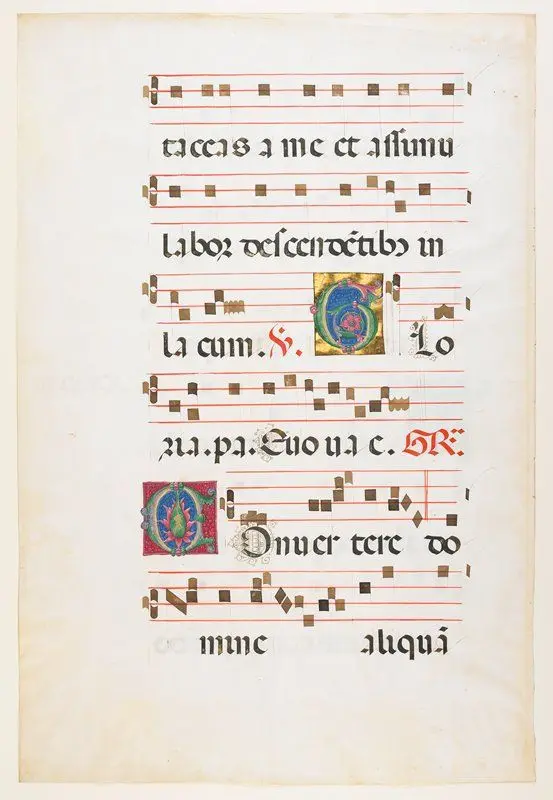 taceas a me et aſſimu
laboꝛ deſcendētibꝫ in
la cum. V. G Lo
ria. pa. Euouae. GR.
C Onuer tere do
mine aliquā